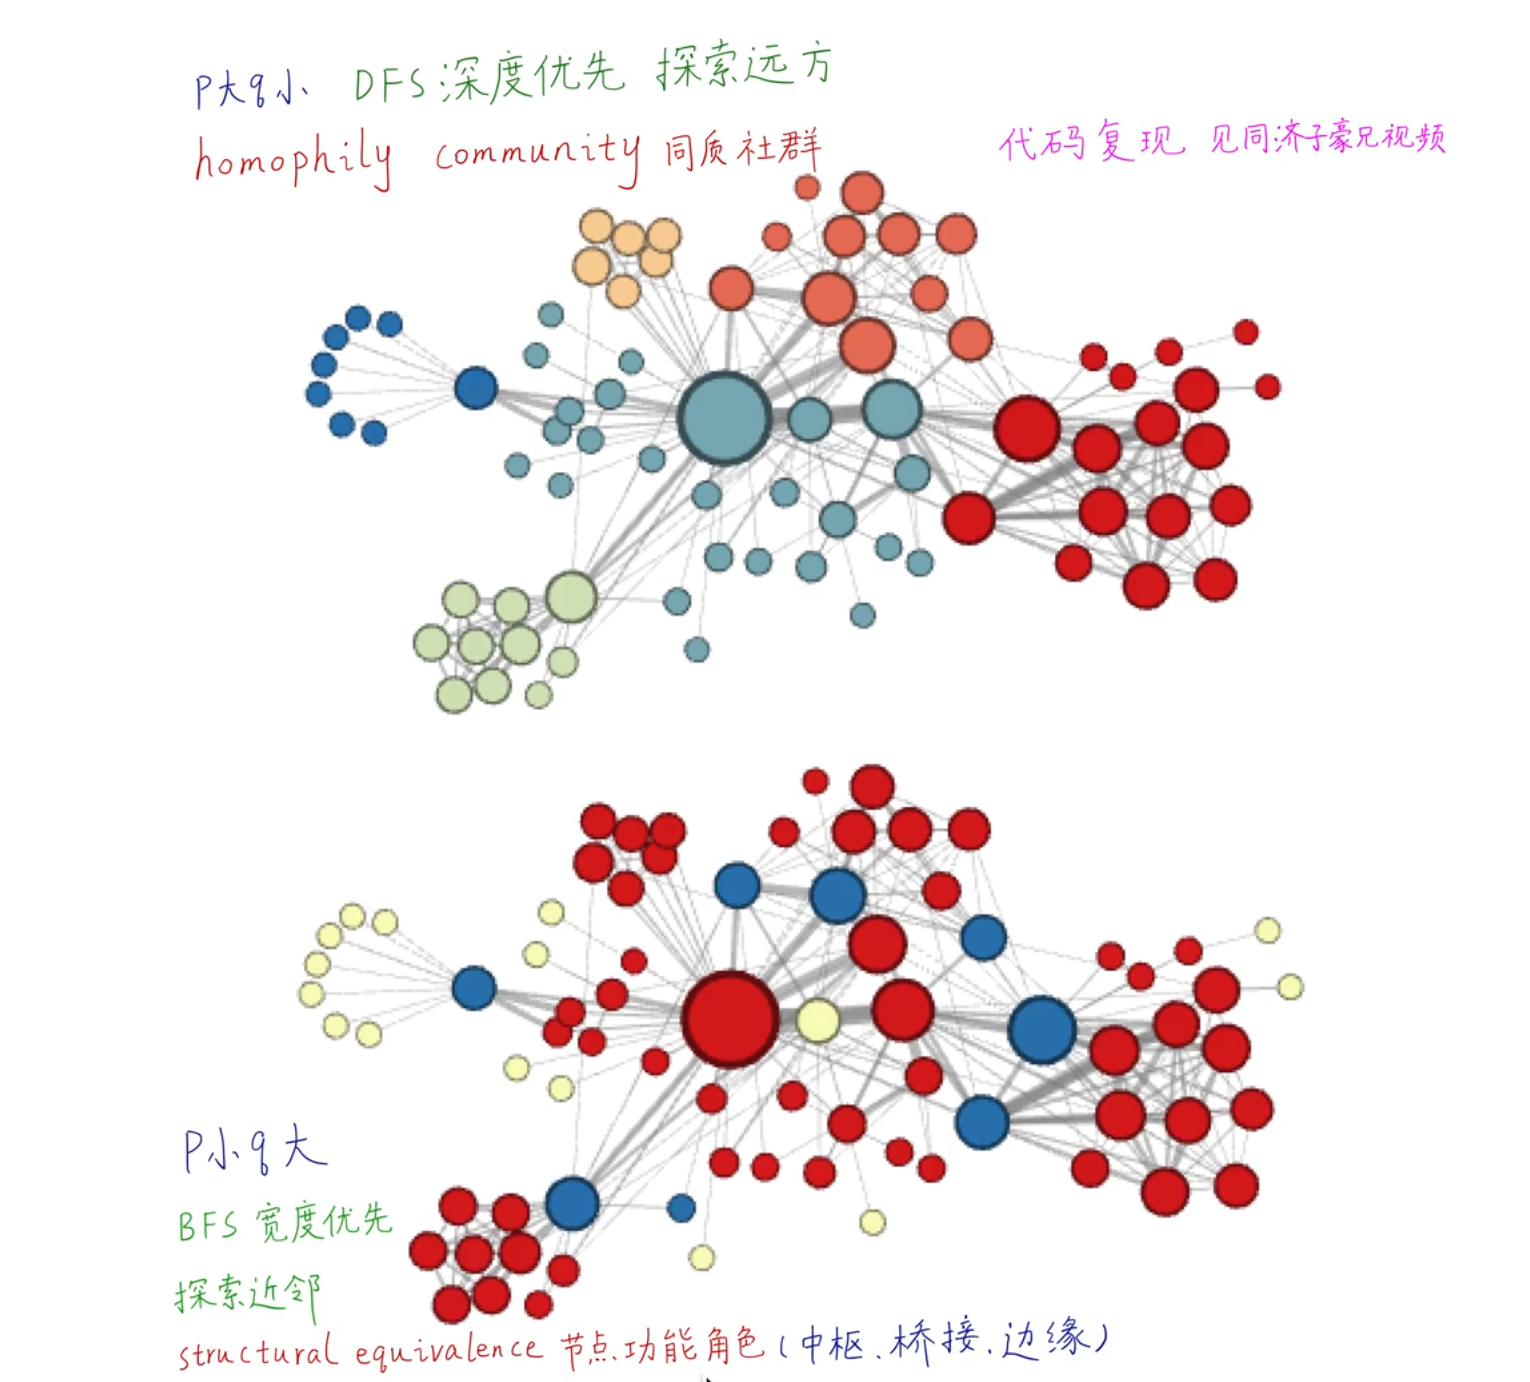 P大q小 DFS:深度优先 探索远方
homophily community 同质社群
代码复现 见同济子豪兄视频
P小q大
BFS 宽度优先
探索近邻
structural equivalence 节点功能角色(中枢、桥接、边缘)